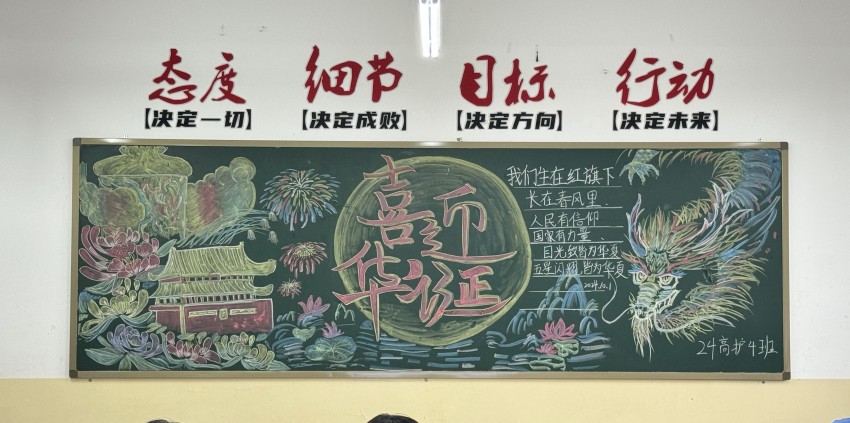 态度 细节 目标 行动
【决定一切】 【决定成败】 【决定方向】 【决定未来】
喜迎
华诞
我们生在红旗下
长在春风里.
人民有信仰
国家有力量
目光致皆为华夏
五星闪耀,皆为华夏
2024.10.1
24高护4班